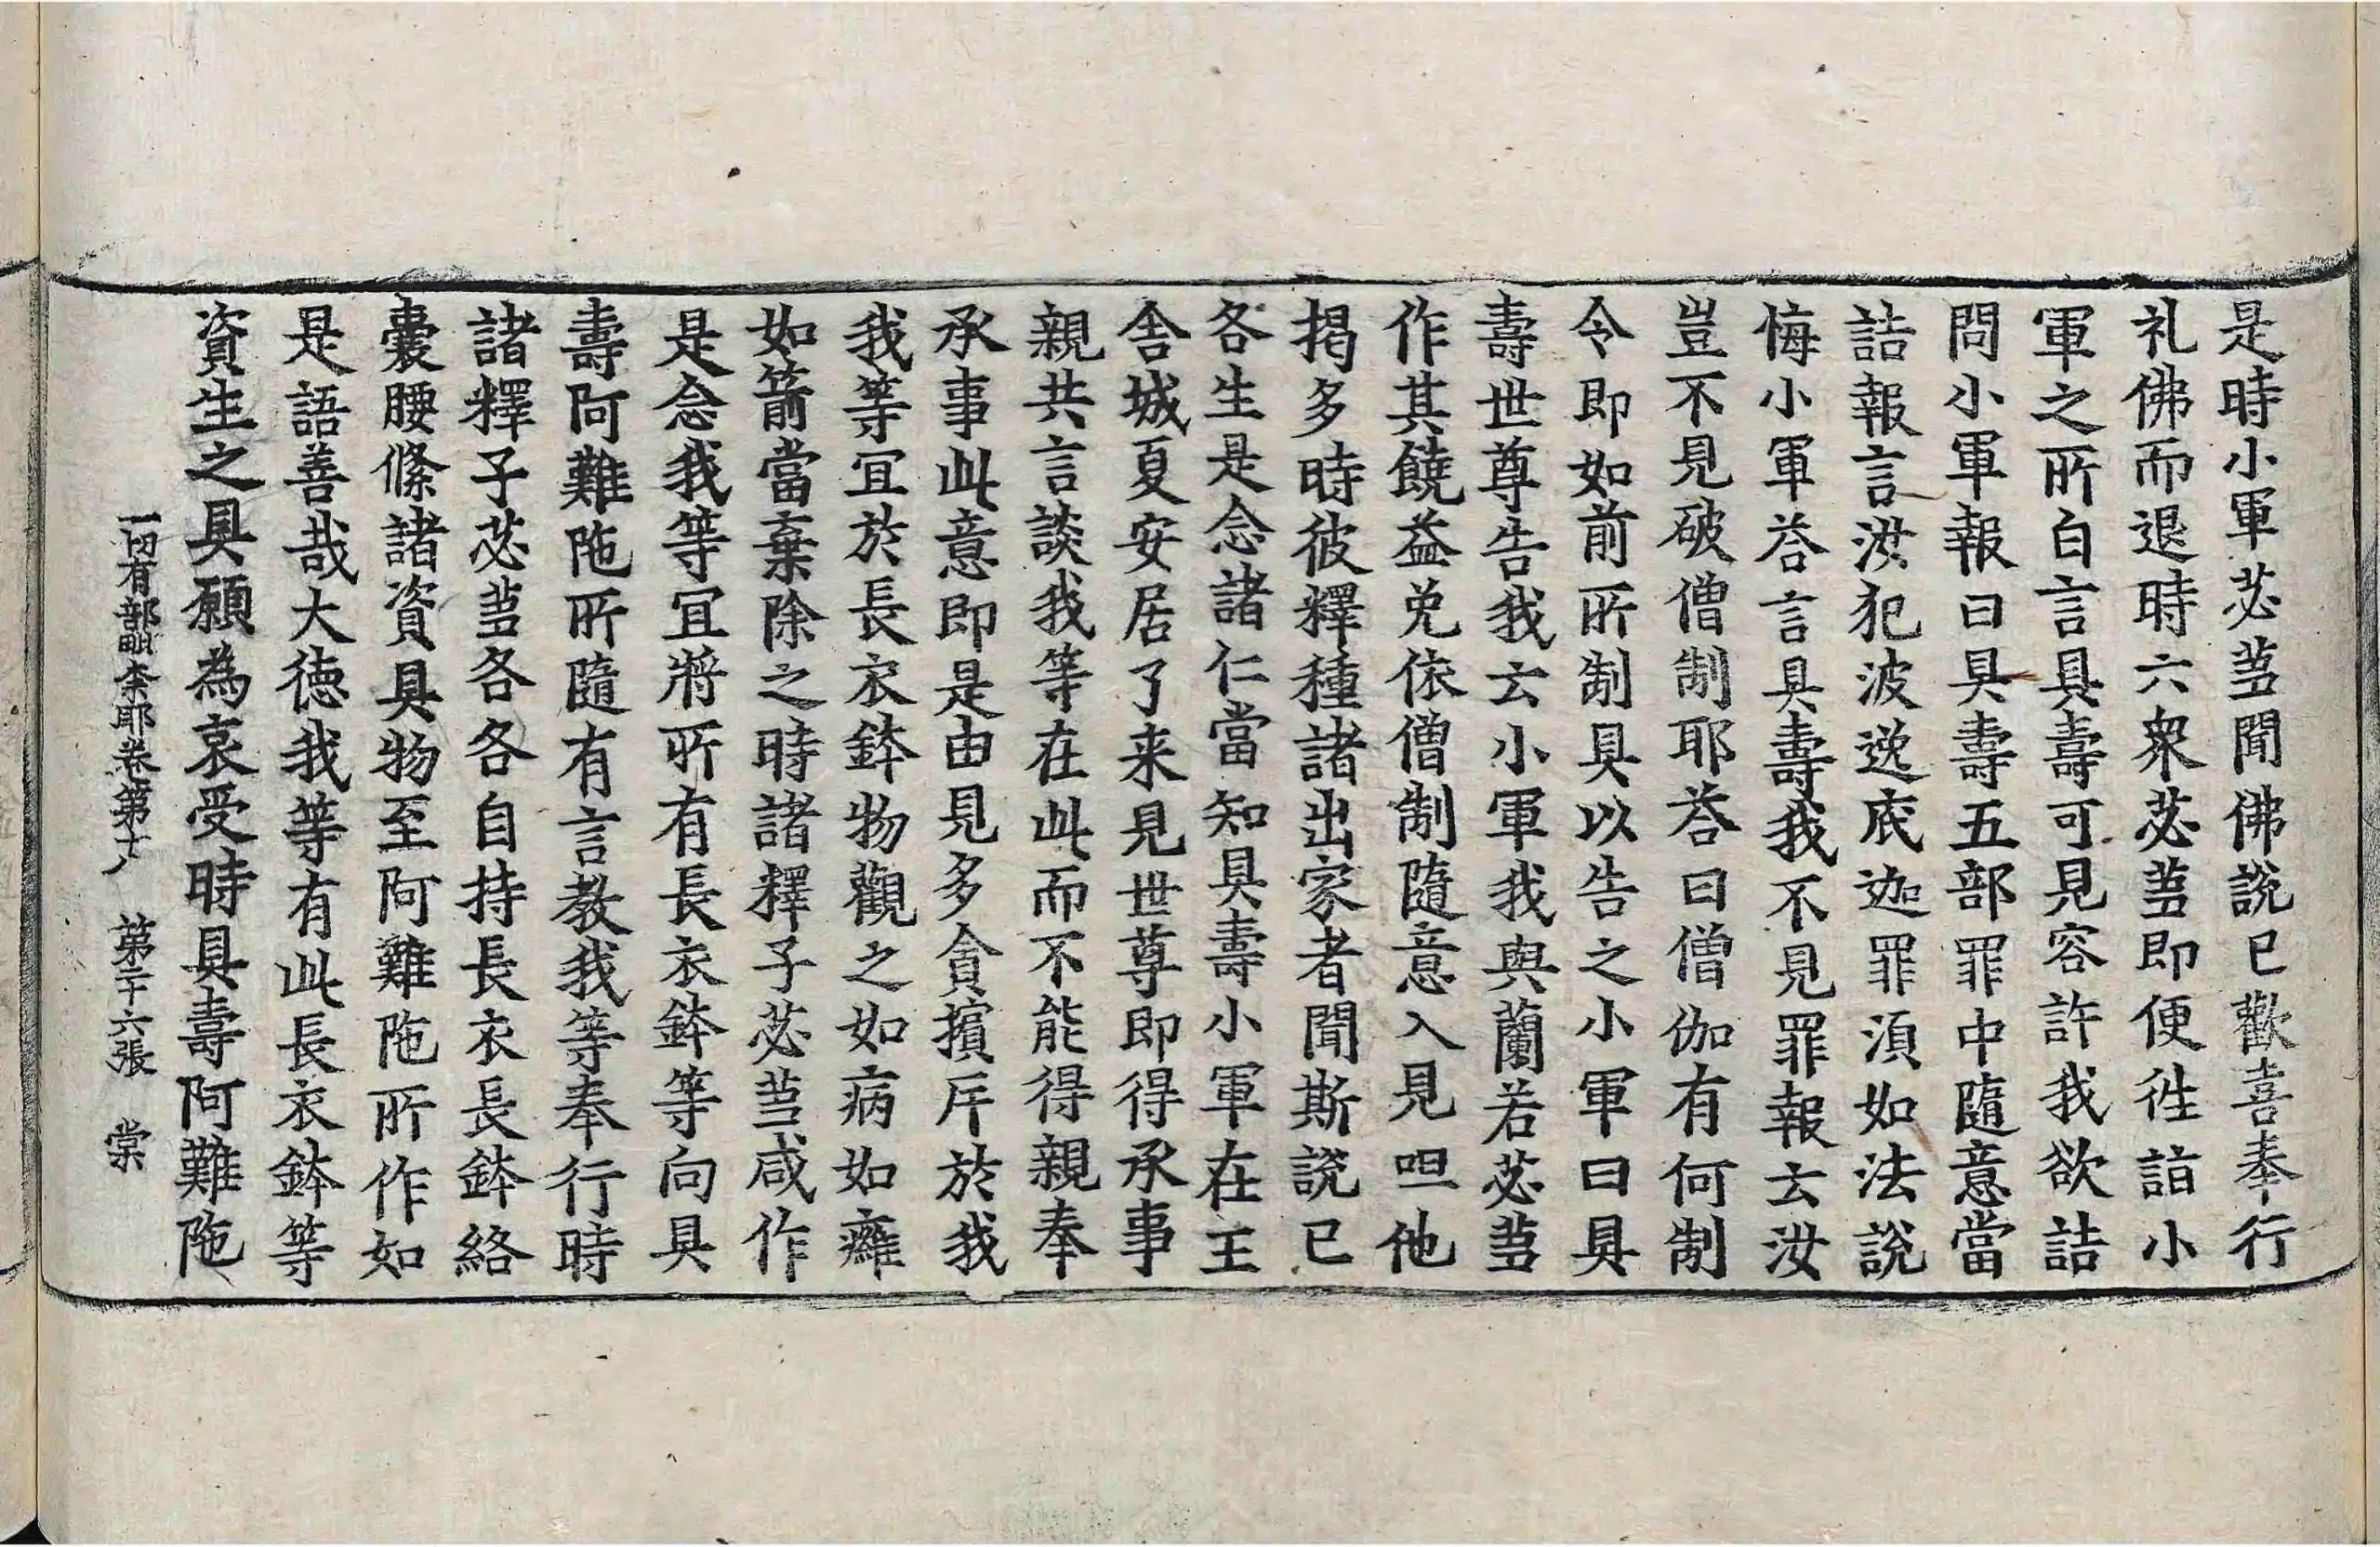 是時小軍苾蒭聞佛說已歡喜奉行
礼佛而退時六衆苾蒭即便徃詣小
軍之所白言具壽可見容許我欲詰
問小軍報曰具壽五部罪中隨意當
詰報言汝犯波逸底迦罪湏如法說
悔小軍荅言具壽我不見罪報云汝
豈不見破僧制耶荅曰僧伽有何制
令即如前所制具以告之小軍曰具
壽世尊告我云小軍我與蘭若苾蒭
作其饒益免依僧制隨意入見呾他
揭多時彼釋種諸出家者聞斯說已
各生是念諸仁當知具壽小軍在王
舍城夏安居了来見世尊即得承事
親共言談我等在此而不能得親奉
承事此意即是由見多貪擯斥於我
我等宜於長衣鉢物觀之如病如癰
如箭當棄除之時諸釋子苾蒭咸作
是念我等宜將所有長衣鉢等向具
壽阿難陁所隨有言教我等奉行時
諸釋子苾蒭各各自持長衣長鉢絡
囊腰絛諸資具物至阿難陁所作如
是語善哉大德我等有此長衣鉢等
資生之具願為哀受時具壽阿難陁
一切有部毗奈耶卷第十八 第二十六張 棠